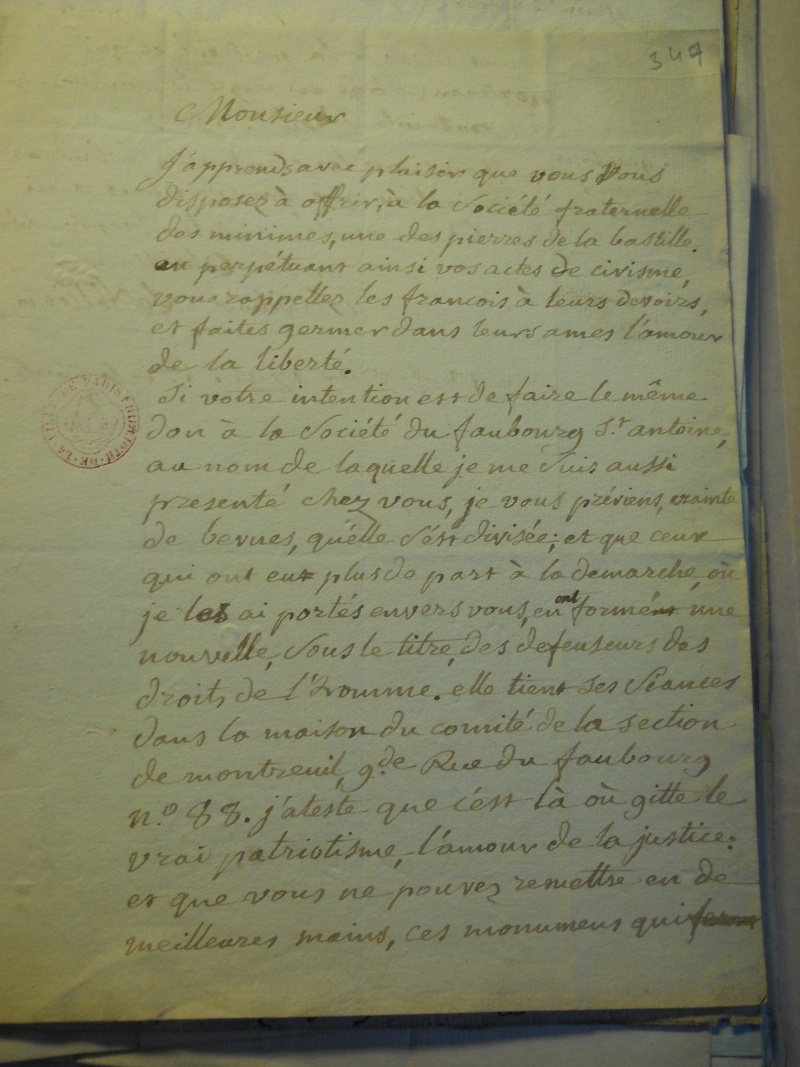 347
Monsieur
J'apprends avec plaisir que vous vous
disposez à offrir, à la Société fraternelle
des minimes, une des pierres de la bastille.
en perpétuant ainsi vos actes de civisme,
vous rappellez les francois à leurs devoirs,
et faites germer dans leurs ames l'amour
de la liberté.
Si votre intention est de faire le même
don à la Société du faubourg St. antoine,
au nom de laquelle je me suis aussi
presenté chez vous, je vous préviens, crainte
de bevues, qu'elle s'est divisée; et que ceux
qui ont eu plus de part à la demarche, où
je les ai portés envers vous, en ont formé une
nouvelle, sous le titre, des defenseurs des
droits de l'homme. elle tient ses séances
dans la maison du comité de la section
de montreuil, gde Rue du faubourg
n.o 88. j'ateste que c'est là où gitte le
vrai patriotisme, l'amour de la justice:
et que vous ne pouvez remettre en de
meilleures mains, ces monumens qui